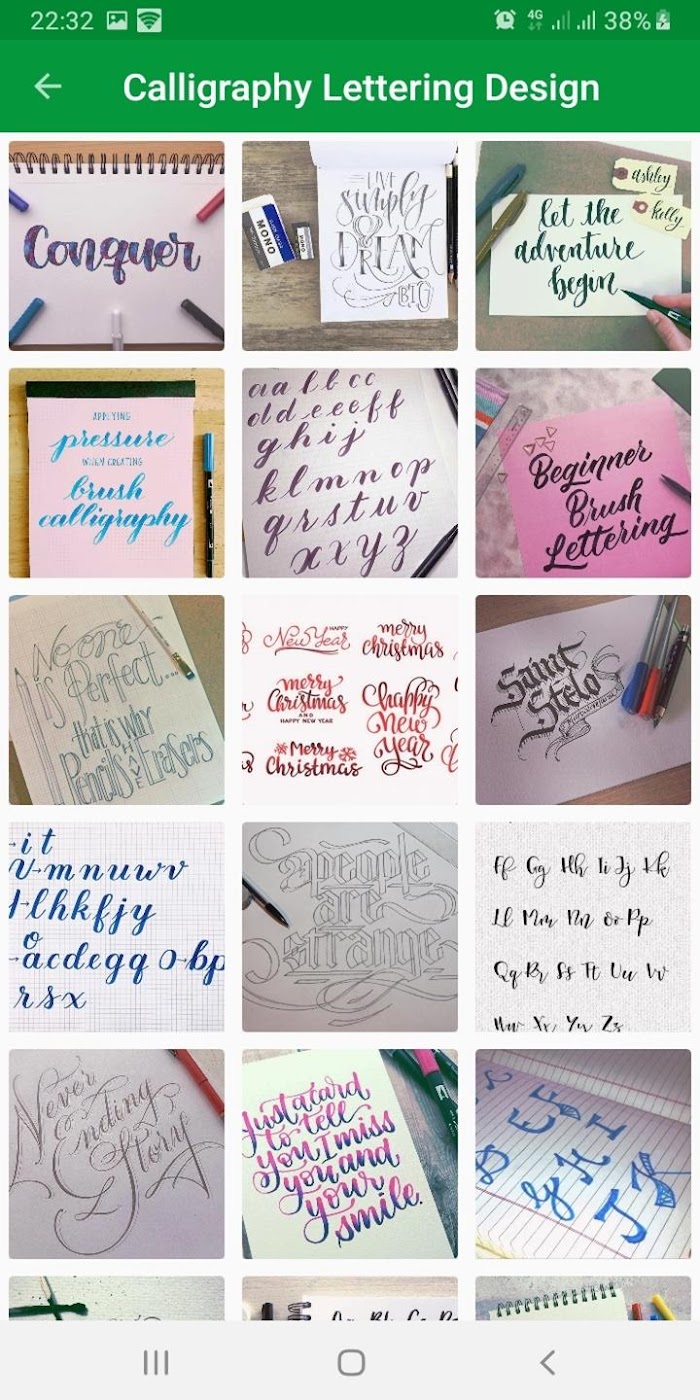 22:32
4G
38%
Calligraphy Lettering Design
Conquer
MONO
MONO
LIVE
simply
DREAM
BIG
ashley
kelly
let the
adventure
begin
APPLYING
pressure
WHEN CREATING
brush
calligraphy
a a b b c c
d d e e e f f
g h i j
k l m n o p
q r s t u v
x x y z
Beginner
Brush
Lettering
No one
is Perfect...
that is why
Pencils have Erasers
HAPPY
New Year
merry
christmas
merry
Christmas
AND
HAPPY NEW YEAR
happy
New
year
Merry
Christmas
Saint
Stelo
i t
m n u w v
l h k f j y
a c d e g q o b p
r s x
people
are
strange
Ff Gg Hh Ii Jj Kk
Ll Mm Nn Oo Pp
Qq Rr Ss Tt Uu Vv
Ww Xx Yy Zz
Never
Ending
Story
Just a card
to tell
you I miss
you and
your
smile.
E F
G H I
J K